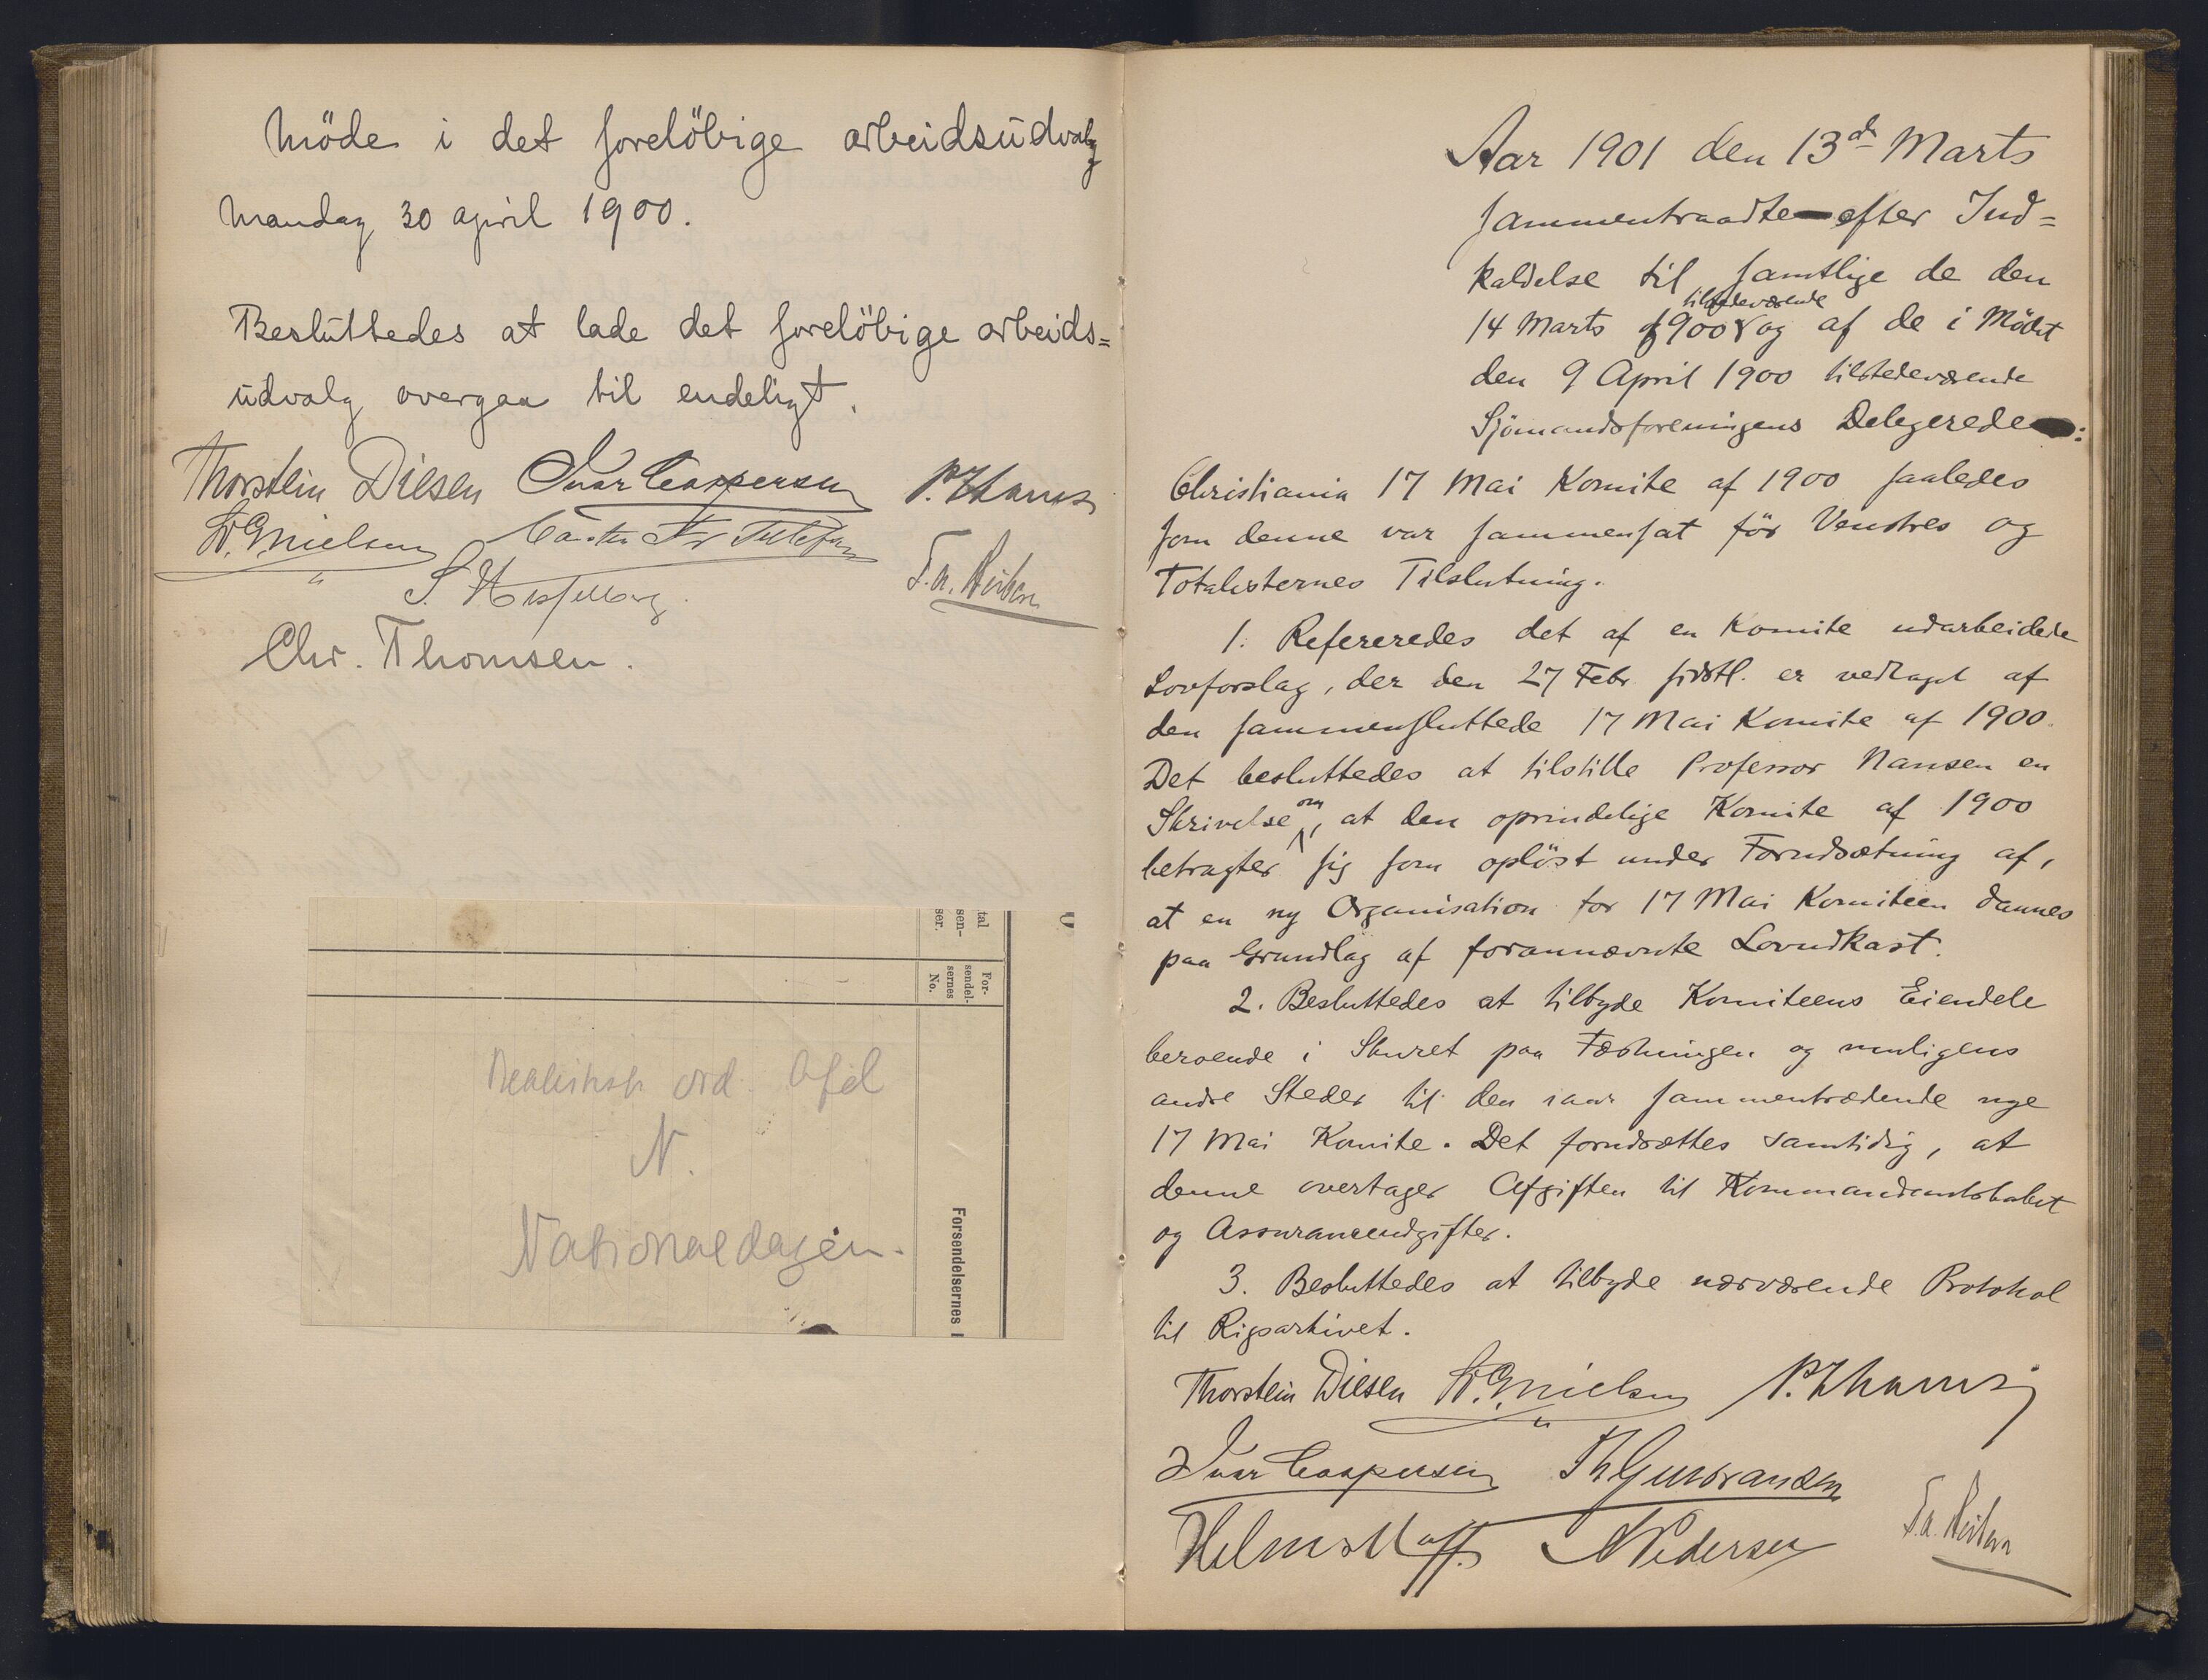 Möde i det foreløbige arbeidsudvalg
mandag 30 april 1900.
Besluttedes at lade det forelöbige arbeids=
udvalg overgaa til endeligt.
Thorstein Diesen Ivar Caspersen P. Thams
W. G. Nielsen
S. Hesselberg
Chr. Thomsen.
tal
sen-
ser.
For-
sendel-
sernes
No.
Forsendelsernes
ord. Afd
N.
Nationaldagen.
Aar 1901 den 13de Marts
sammentraadte efter Ind=
kaldelse til samtlige de den
tilstedeværende
14 Marts 1900 og af de i Mödet
den 9 April 1900 tilstedeværende
Sjömandsforeningens Delegerede:
Christiania 17 Mai Komite af 1900 saaledes
som denne var sammensat för Venstres og
Totalisternes Tilslutning.
1. Refereredes det af en Komite udarbeidede
Lovforslag, der den 27 Febr. sidstl. er vedtaget af
den sammensluttede 17 Mai Komite af 1900.
Det besluttedes at tilstille Professor Nansen en
Skrivelse om, at den oprindelige Komite af 1900
betragter sig som oplöst under Forudsætning af,
at en ny Organisation for 17 Mai Komiteen dannes
paa Grundlag af forannævnte Lovudkast.
2. Besluttedes at tilbyde Komiteens Eiendele
beroende i Skuret paa Fæstningen og muligens
andre Steder til den iaar sammentrædende nye
17 Mai Komite. Det forudsættes samtidig, at
denne overtager Afgiften til Kommandantskabet
og Assuranceudgifter.
3. Besluttedes at tilbyde nærværende Protokol
til Rigsarkivet.
Thorstein Diesen W. G. Nielsen P. Thams
Ivar Caspersen Th Gulbrandsen
N Pedersen